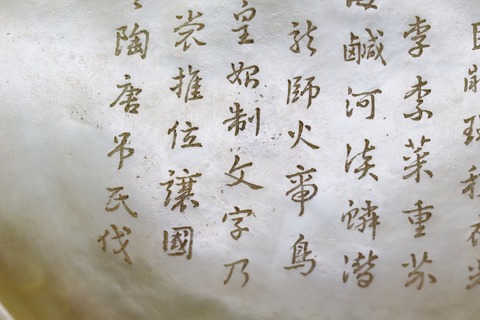 李柰菜重芥
海鹹河淡鱗潛
龍師火帝鳥
皇始制文字乃
裳推位讓國
陶唐吊民伐